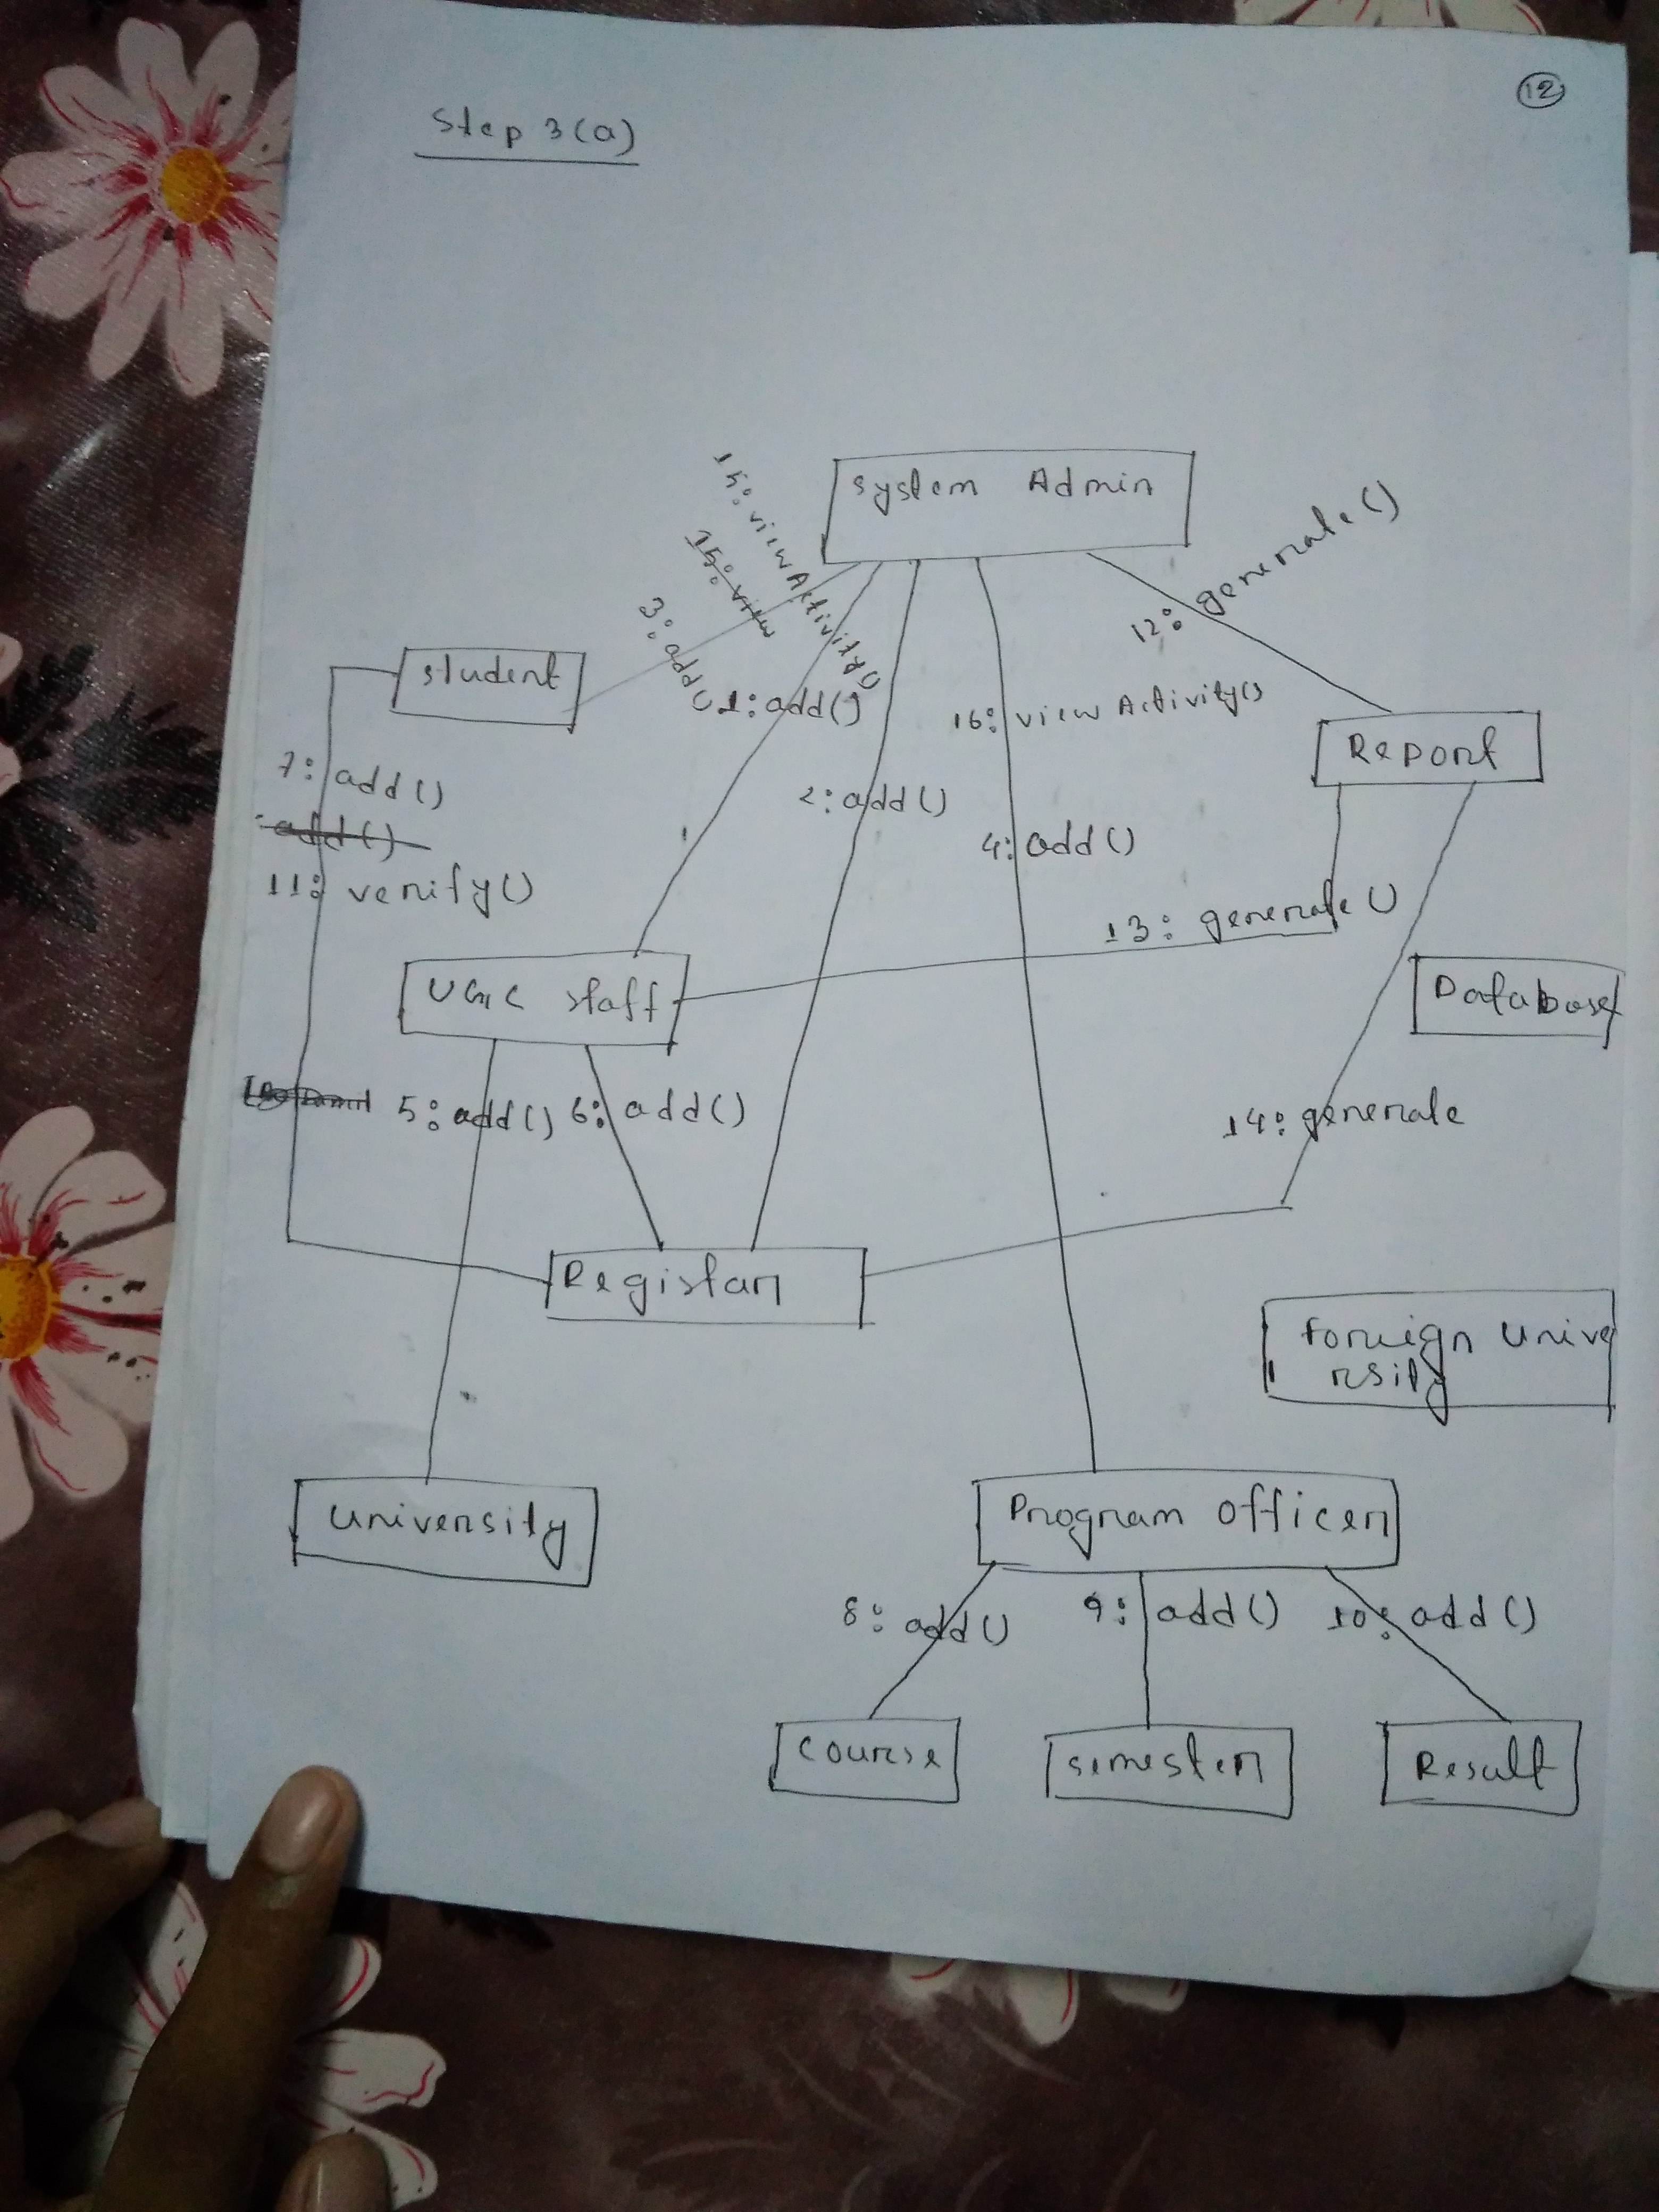 12
Step 3(a)
System Admin
15: viewActivity()
15: view
3: add()
1: add()
12: generate()
Student
16: view Activity()
Report
7: add()
2: add()
add()
4: add()
11: verify()
13: generate()
UGC Staff
Database
5: add()
6: add()
14: generate
Registar
Foreign Unive
rsity
University
Program Officer
8: add()
9: add()
10: add()
Course
Semester
Result